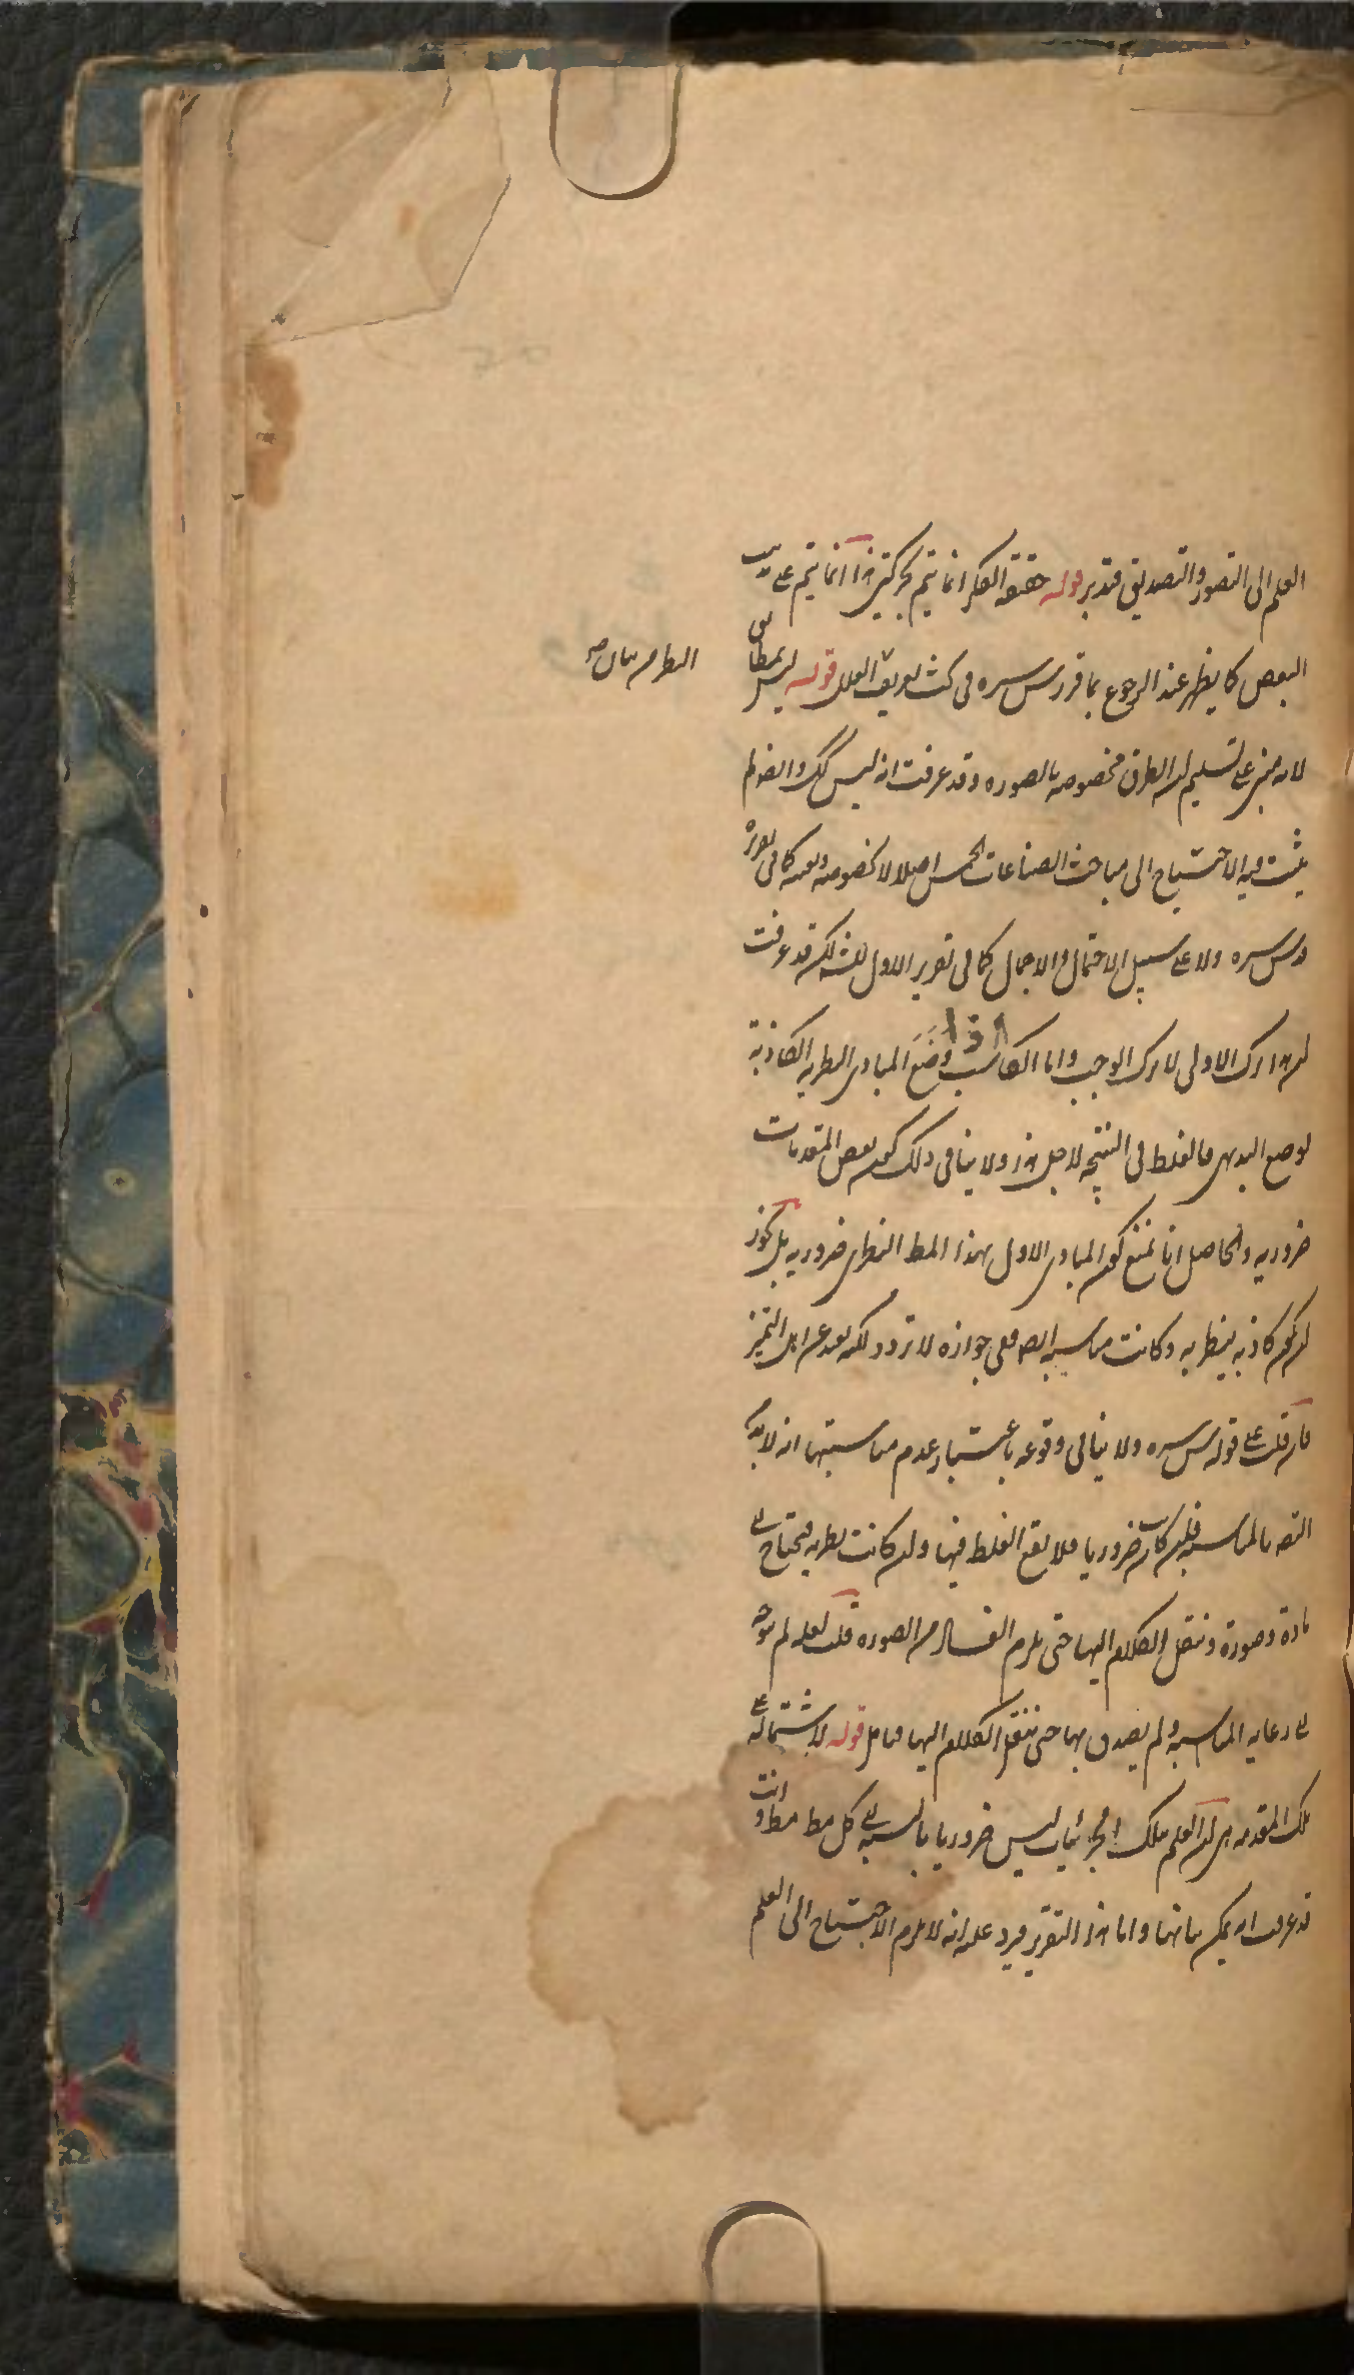 العلم الى التصور والتصديق فتدبر قوله حقيقة الفكر انما يتم بحركتين هذا انما يتم على مذهب
البعض كما يظهر عند الرجوع بما قرر س سره فى تعريف العلل قوله ليس بمطابق
لانه مبنى على تسليم ان الطرق مخصوصه بالصوره وقد عرفت انه ليس كك وايضا لم
يثبت فيه الاحتياج الى مباحث الصناعات الخمس اصلا لا بخصوصه كما فى تقريره
قدس سره ولا على سبيل الاحتمال والاجمال كما فى تقرير الاول للش لكن قد عرفت
ان هذا ترك الاولى لا ترك الواجب واما الكاسب وضع المبادى النظريه الكاذبة
لوضع البديهى فالغلط فى النتيجه لاجل هذا ولا ينافى ذلك كون بعض المقدمات
ضروريه والحاصل انا نمنع كون المبادى الاول لهذا المط النظرى ضروريه بل يجوز
ان يكون كاذبه نظريه وكانت مناسبه ففى جوازه لا تردد لكنه بعيد عن اهل التميز
فان قلت على قوله س سره ولا ينافى وقوعه باعتبار عدم مناسبتها انه لابد
التصديق بالمناسبه فان كان ضروريا فلا يقع الغلط فيها وان كانت نظريه فيحتاج الى
مادة وصورة وننقل الكلام اليها حتى يلزم الفساد من الصوره قلت لعله لم يتوجه
الى رعايه المناسبه ولم يصدق بها حتى ننقل الكلام اليها فتامل قوله لاشتماله على
تلك المقدمه هى ان العلم بتلك الجزئيات ليس ضروريا بالنسبه الى كل مط مط وانت
قد عرفت انه يمكن بيانها واما هذا التقرير فيرد عليه انه لا يلزم الاحتياج الى العلم